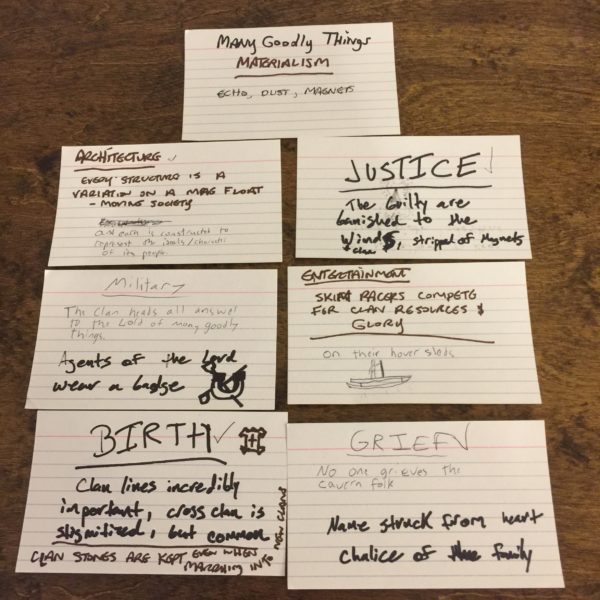 MANY Goodly Things
MATERIALISM
ECHO, DUST, MAGNETS
ARCHITECTURE ✓
EVERY STRUCTURE IS A
VARIATION ON A MAG FLOAT
- MOVING SOCIETY
and each is constructed to
represent the ideals/
of its people
JUSTICE ✓
The Guilty are
banished to the
Winds, stripped of Magnets
+ clan
Military
The Clan heads all answer
to the Lord of many goodly
things.
Agents of the Lord
wear a badge
ENTERTAINMENT
SKIFF RACERS COMPETE
FOR CLAN RESOURCES &
GLORY
on their hover sleds
BIRTH ✓
Clan lines incredibly
important, cross clan is
stigmitized, but common
CLAN STONES ARE KEPT EVEN WHEN
MARRYING INTO NEW CLANS
GRIEF ✓
No one grieves the
cavern folk
Name struck from heart
chalice of the family